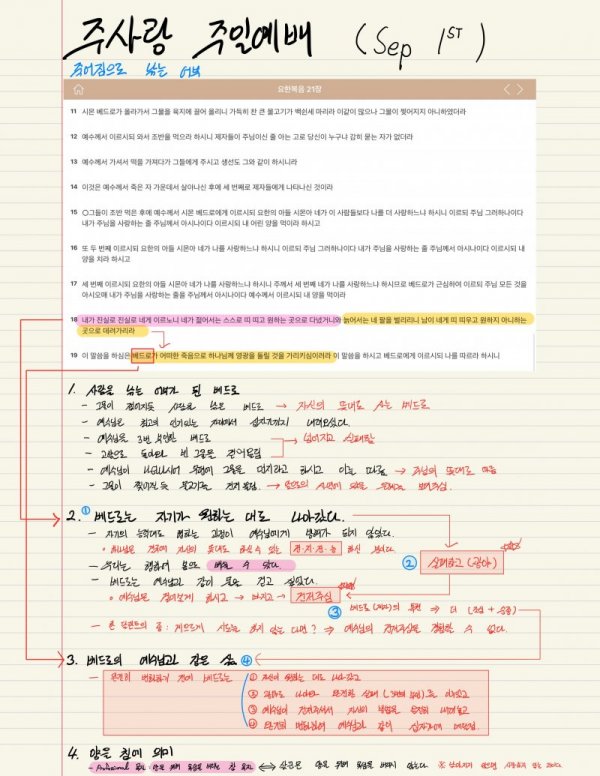 주사랑 주일예배 (Sep 1ST)
죽어짐으로 낚는 어부
요한복음 21장
11 시몬 베드로가 올라가서 그물을 육지에 끌어 올리니 가득히 찬 큰 물고기가 백쉰세 마리라 이같이 많으나 그물이 찢어지지 아니하였더라
12 예수께서 이르시되 와서 조반을 먹으라 하시니 제자들이 주님이신 줄 아는 고로 당신이 누구냐 감히 묻는 자가 없더라
13 예수께서 가셔서 떡을 가져다가 그들에게 주시고 생선도 그와 같이 하시니라
14 이것은 예수께서 죽은 자 가운데서 살아나신 후에 세 번째로 제자들에게 나타나신 것이라
15 ○그들이 조반 먹은 후에 예수께서 시몬 베드로에게 이르시되 요한의 아들 시몬아 네가 이 사람들보다 나를 더 사랑하느냐 하시니 이르되 주님 그러하나이다
내가 주님을 사랑하는 줄 주님께서 아시나이다 이르시되 내 어린 양을 먹이라 하시고
16 또 두 번째 이르시되 요한의 아들 시몬아 네가 나를 사랑하느냐 하시니 이르되 주님 그러하나이다 내가 주님을 사랑하는 줄 주님께서 아시나이다 이르시되 내
양을 치라 하시고
17 세 번째 이르시되 요한의 아들 시몬아 네가 나를 사랑하느냐 하시니 주께서 세 번째 네가 나를 사랑하느냐 하시므로 베드로가 근심하여 이르되 주님 모든 것을
아시오매 내가 주님을 사랑하는 줄을 주님께서 아시나이다 예수께서 이르시되 내 양을 먹이라
18 내가 진실로 진실로 네게 이르노니 네가 젊어서는 스스로 띠 띠고 원하는 곳으로 다녔거니와 늙어서는 네 팔을 벌리리니 남이 네게 띠 띠우고 원하지 아니하는
곳으로 데려가리라
19 이 말씀을 하심은 베드로가 어떠한 죽음으로 하나님께 영광을 돌릴 것을 가리키심이러라 이 말씀을 하시고 베드로에게 이르시되 나를 따르라 하시니
1. 사람을 낚는 어부가 된 베드로
- 그물이 찢어지듯 사람을 낚은 베드로 → 자신의 뜻대로 사는 베드로
- 예수님은 최고의 인기있는 자리에서 십자가까지 내려오셨다.
- 예수님을 3번 부인한 베드로 → 넘어지고 실패함
- 고향으로 돌아와 빈 그물을 걷어올림
- 예수님이 나타나셔서 오른편에 그물을 던지라고 하시고 이를 따름 → 주님의 뜻대로 행동
- 그물이 찢어질 듯 물고기를 걷어 올림. → 앞으로의 사역이 있을 보여주심.
2. ① 베드로는 자기가 원하는 대로 나아갔다.
- 자기의 능력대로 원하는 고집이 예수님에게 방해가 되지 않았다.
하나님은 자신의 뜻대로 하실 수 있는 전지전능 하신 분이다
- 우리는 경험하여 봄으로 배울 수 있다.
② 실패하고 (광야)
- 베드로는 예수님과 같이 물을 걷고 싶었다.
예수님은 걸어보게 하시고 → 빠지고 → 건져주심
③ 베드로(제자)의 특권 ⇒ 더 (진심 + 순종)
- 한 달란트의 종 : 게으르게 시도를 하지 않는 다면? ⇒ 예수님의 건져주심을 경험할 수 없다.
3. 베드로의 예수님과 같은 삶 ④
- 온전히 변화하기 전에 베드로는
① 자신이 원하는 대로 나아가고
② 실패 (3번의 부인)
③ 예수님이 건져주셔서 자신의 온전히 내려놓고
④ 온전히 변화하여 예수님과 같이 십자가에
4. 양을 침에 의미
- Professional 목자 : 양을 위해 목숨을 버리는 참 목자 ↔ 삯꾼은 양을 위해 목숨을 버리지 않는다.